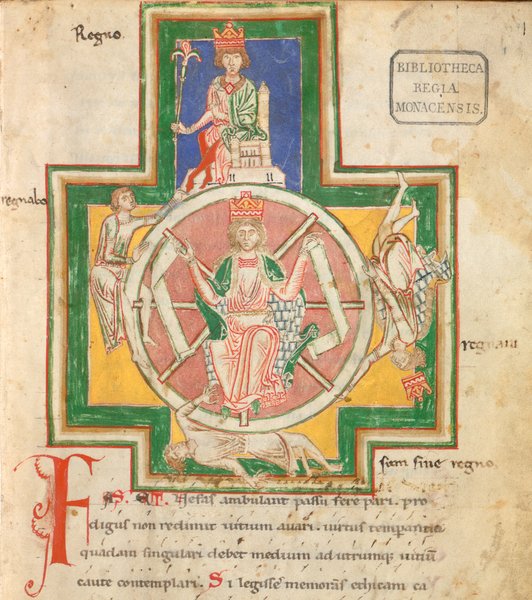 Regno.
BIBLIOTHECA
REGIA
MONACENSIS.
regnabo
regnaui
sum sine regno.
FAS. ET. Nefas ambulant passu fere pari. pro
digus non redimit uitium auari. uirtus temperantia
quadam singulari debet medium ad utrumq; uitiū
caute contemplari. Si legisse memoras ethicam ca